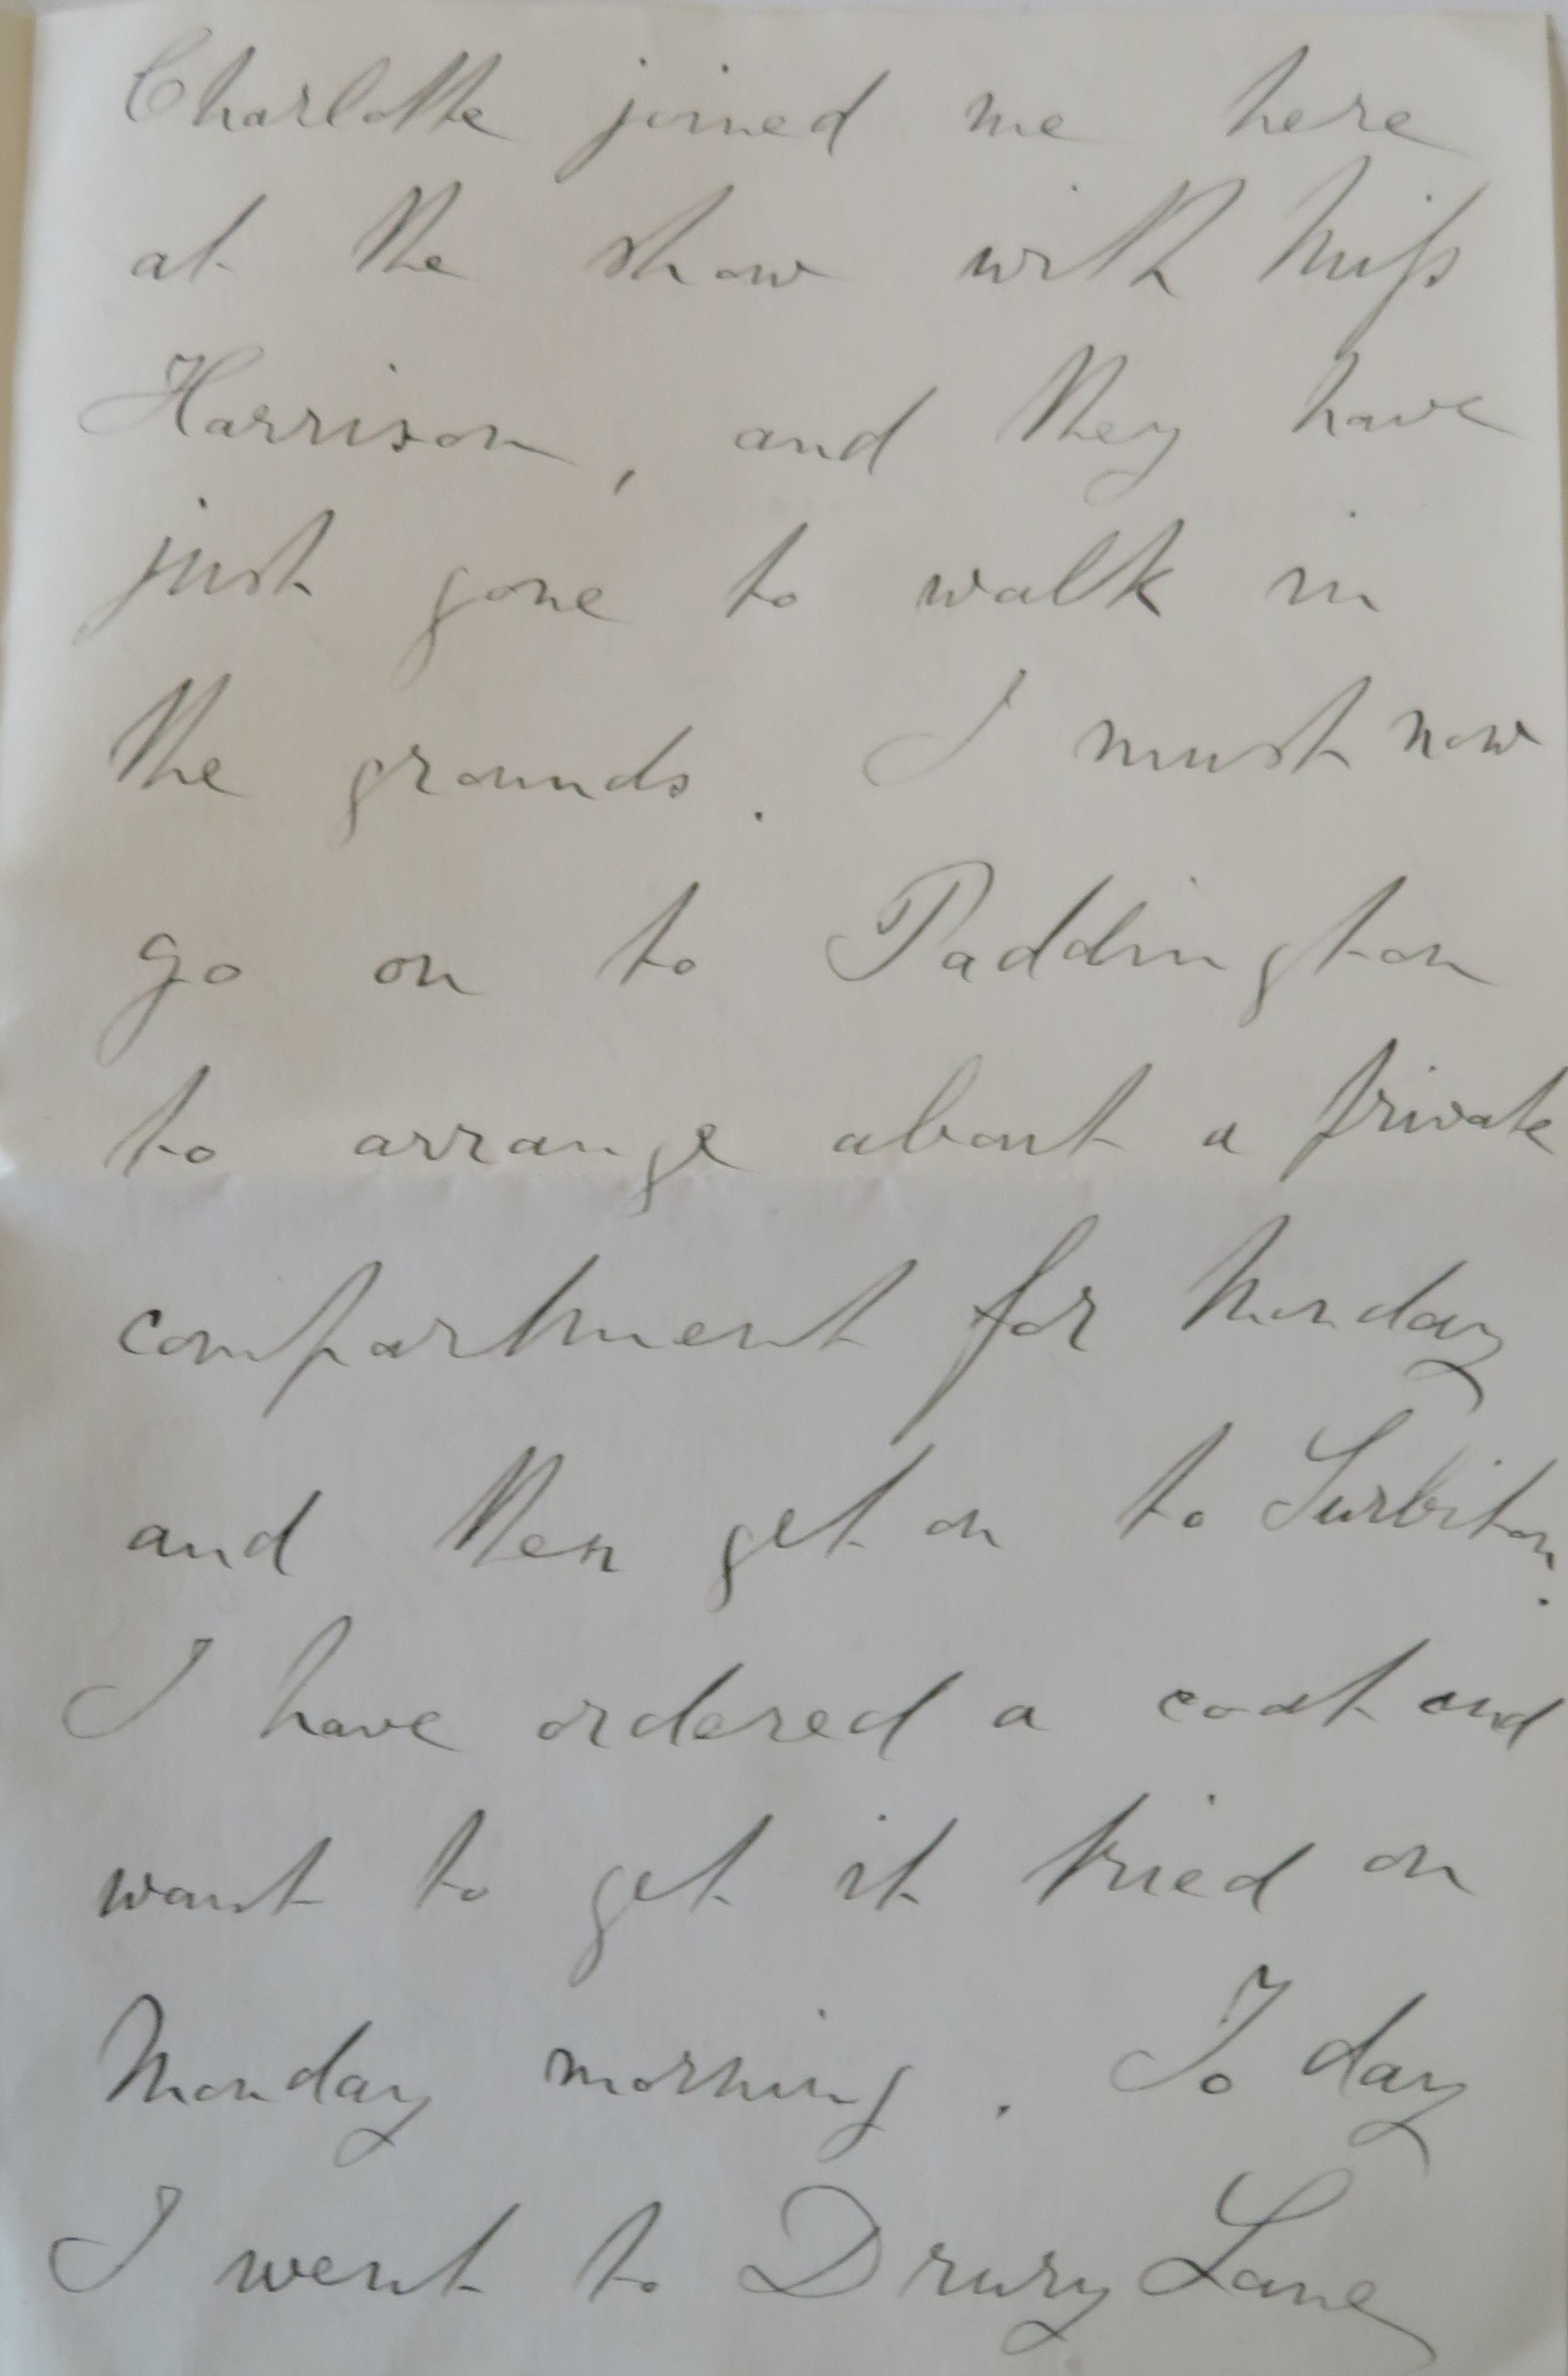 Charlotte joined me here
at the show with Miss
Harrison, and they have
just gone to walk in
the grounds. I must now
go on to Paddington
to arrange about a private
compartment for Monday
and then get on to Surbiton.
I have ordered a coat and
want to get it tried on
Monday morning. To day
I went to Drury Lane